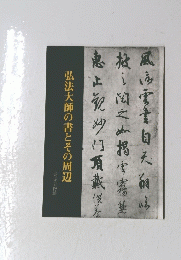 風信雲書自天翔臨
披之閲之如掲雲霧兼
惠止觀妙門頂戴供養
弘法大師の書とその周辺